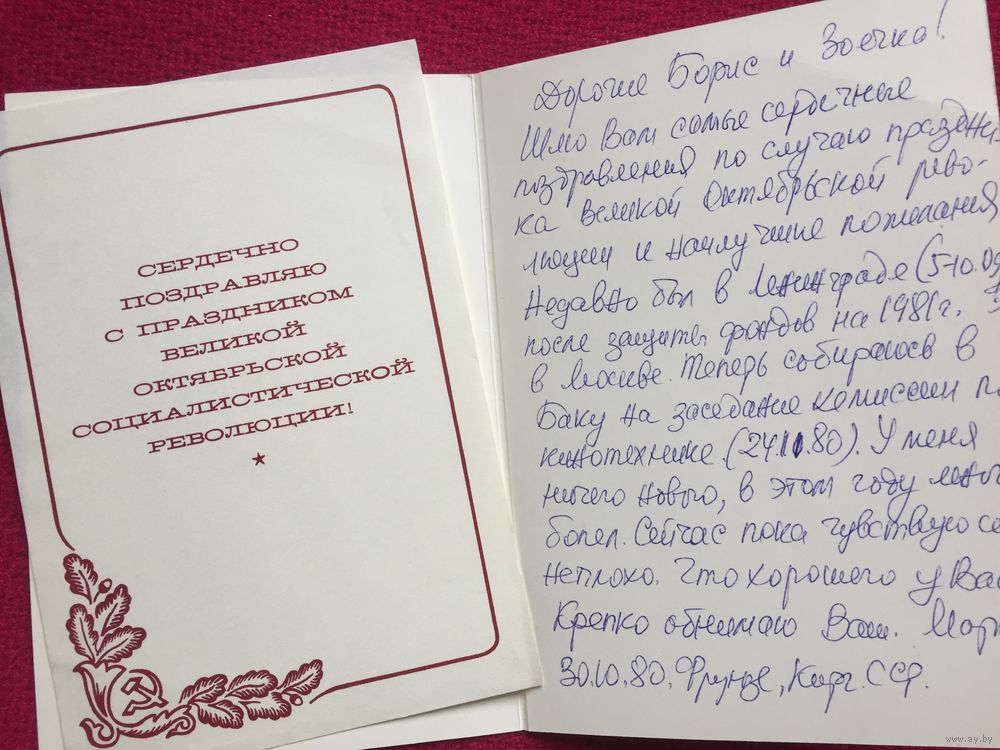 СЕРДЕЧНО
ПОЗДРАВЛЯЮ
С ПРАЗДНИКОМ
ВЕЛИКОЙ
ОКТЯБРЬСКОЙ
СОЦИАЛИСТИЧЕСКОЙ
РЕВОЛЮЦИИ!
Дорогие Борис и Зоечка!
Шлю Вам самые сердечные
поздравления по случаю праздни-
ка Великой Октябрьской рево-
люции и наилучшие пожелания
Недавно был в Ленинграде (5-10.09
после защиты фондов на 1981г.
в Москве. Теперь собираюсь в
Баку на заседание комиссии п
кинотехнике (24.11.80). У меня
ничего нового, в этом году
болел. Сейчас пока чувствую се
неплохо. Что хорошего у Вас
Крепко обнимаю Ваш.
30.10.80. Фрунзе, Кирг. ССР.
www.ay.by